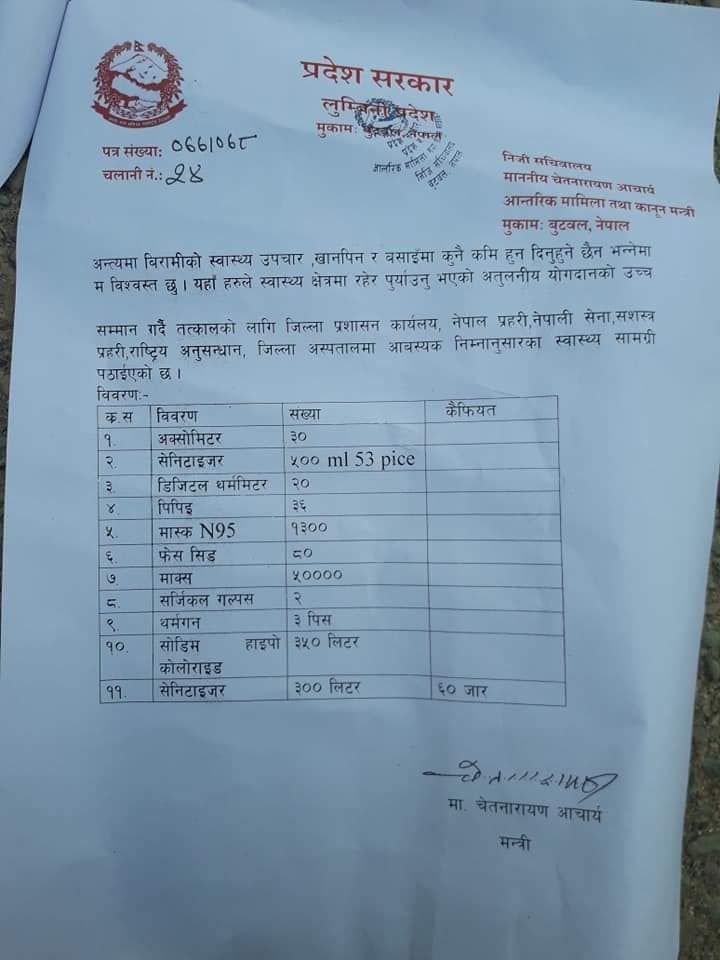 प्रदेश सरकार
लुम्बिनी प्रदेश
मुकामः बुटवल, नेपाल
पत्र संख्याः ०७७/०७८
चलानी नं.: २४
निजी सचिवालय
माननीय चेतनारायण आचार्य
आन्तरिक मामिला तथा कानून मन्त्री
मुकामः बुटवल, नेपाल
अन्त्यमा बिरामीको स्वास्थ्य उपचार ,खानपिन र वसाईमा कुनै कमि हुन दिनुहुने छैन भन्नेमा
म विश्वस्त छु । यहाँ हरुले स्वास्थ्य क्षेत्रमा रहेर पुर्याउनु भएको अतुलनीय योगदानको उच्च
सम्मान गर्दै तत्कालको लागि जिल्ला प्रशासन कार्यालय, नेपाल प्रहरी,नेपाली सेना,सशस्त्र
प्रहरी,राष्ट्रिय अनुसन्धान, जिल्ला अस्पतालमा आबस्यक निम्नानुसारका स्वास्थ्य सामग्री
पठाईएको छ ।
विवरण:-
क.स विवरण संख्या कैफियत
१. अक्सोमिटर ३०
२. सेनिटाइजर ५०० ml 53 pice
३. डिजिटल थर्ममिटर २०
४. पिपिइ ३६
५. मास्क N95 १३००
६. फेस सिड ८०
७ माक्स ५००००
८. सर्जिकल गल्पस २
९. थर्मगन ३ पिस
१०. सोडिम हाइपो ३५० लिटर
कोलोराइड
११. सेनिटाइजर ३०० लिटर ६० जार
मा. चेतनारायण आचार्य
मन्त्री